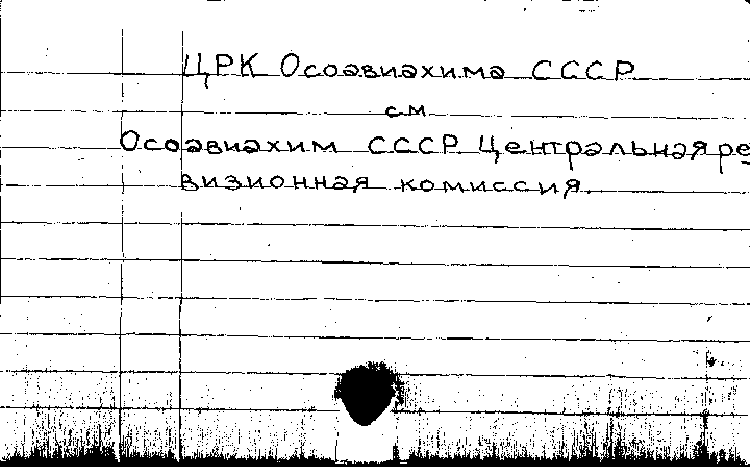 ЦРК Осоавиахима СССР
см
Осоавиахим СССР Центральная ре
визионная комиссия.